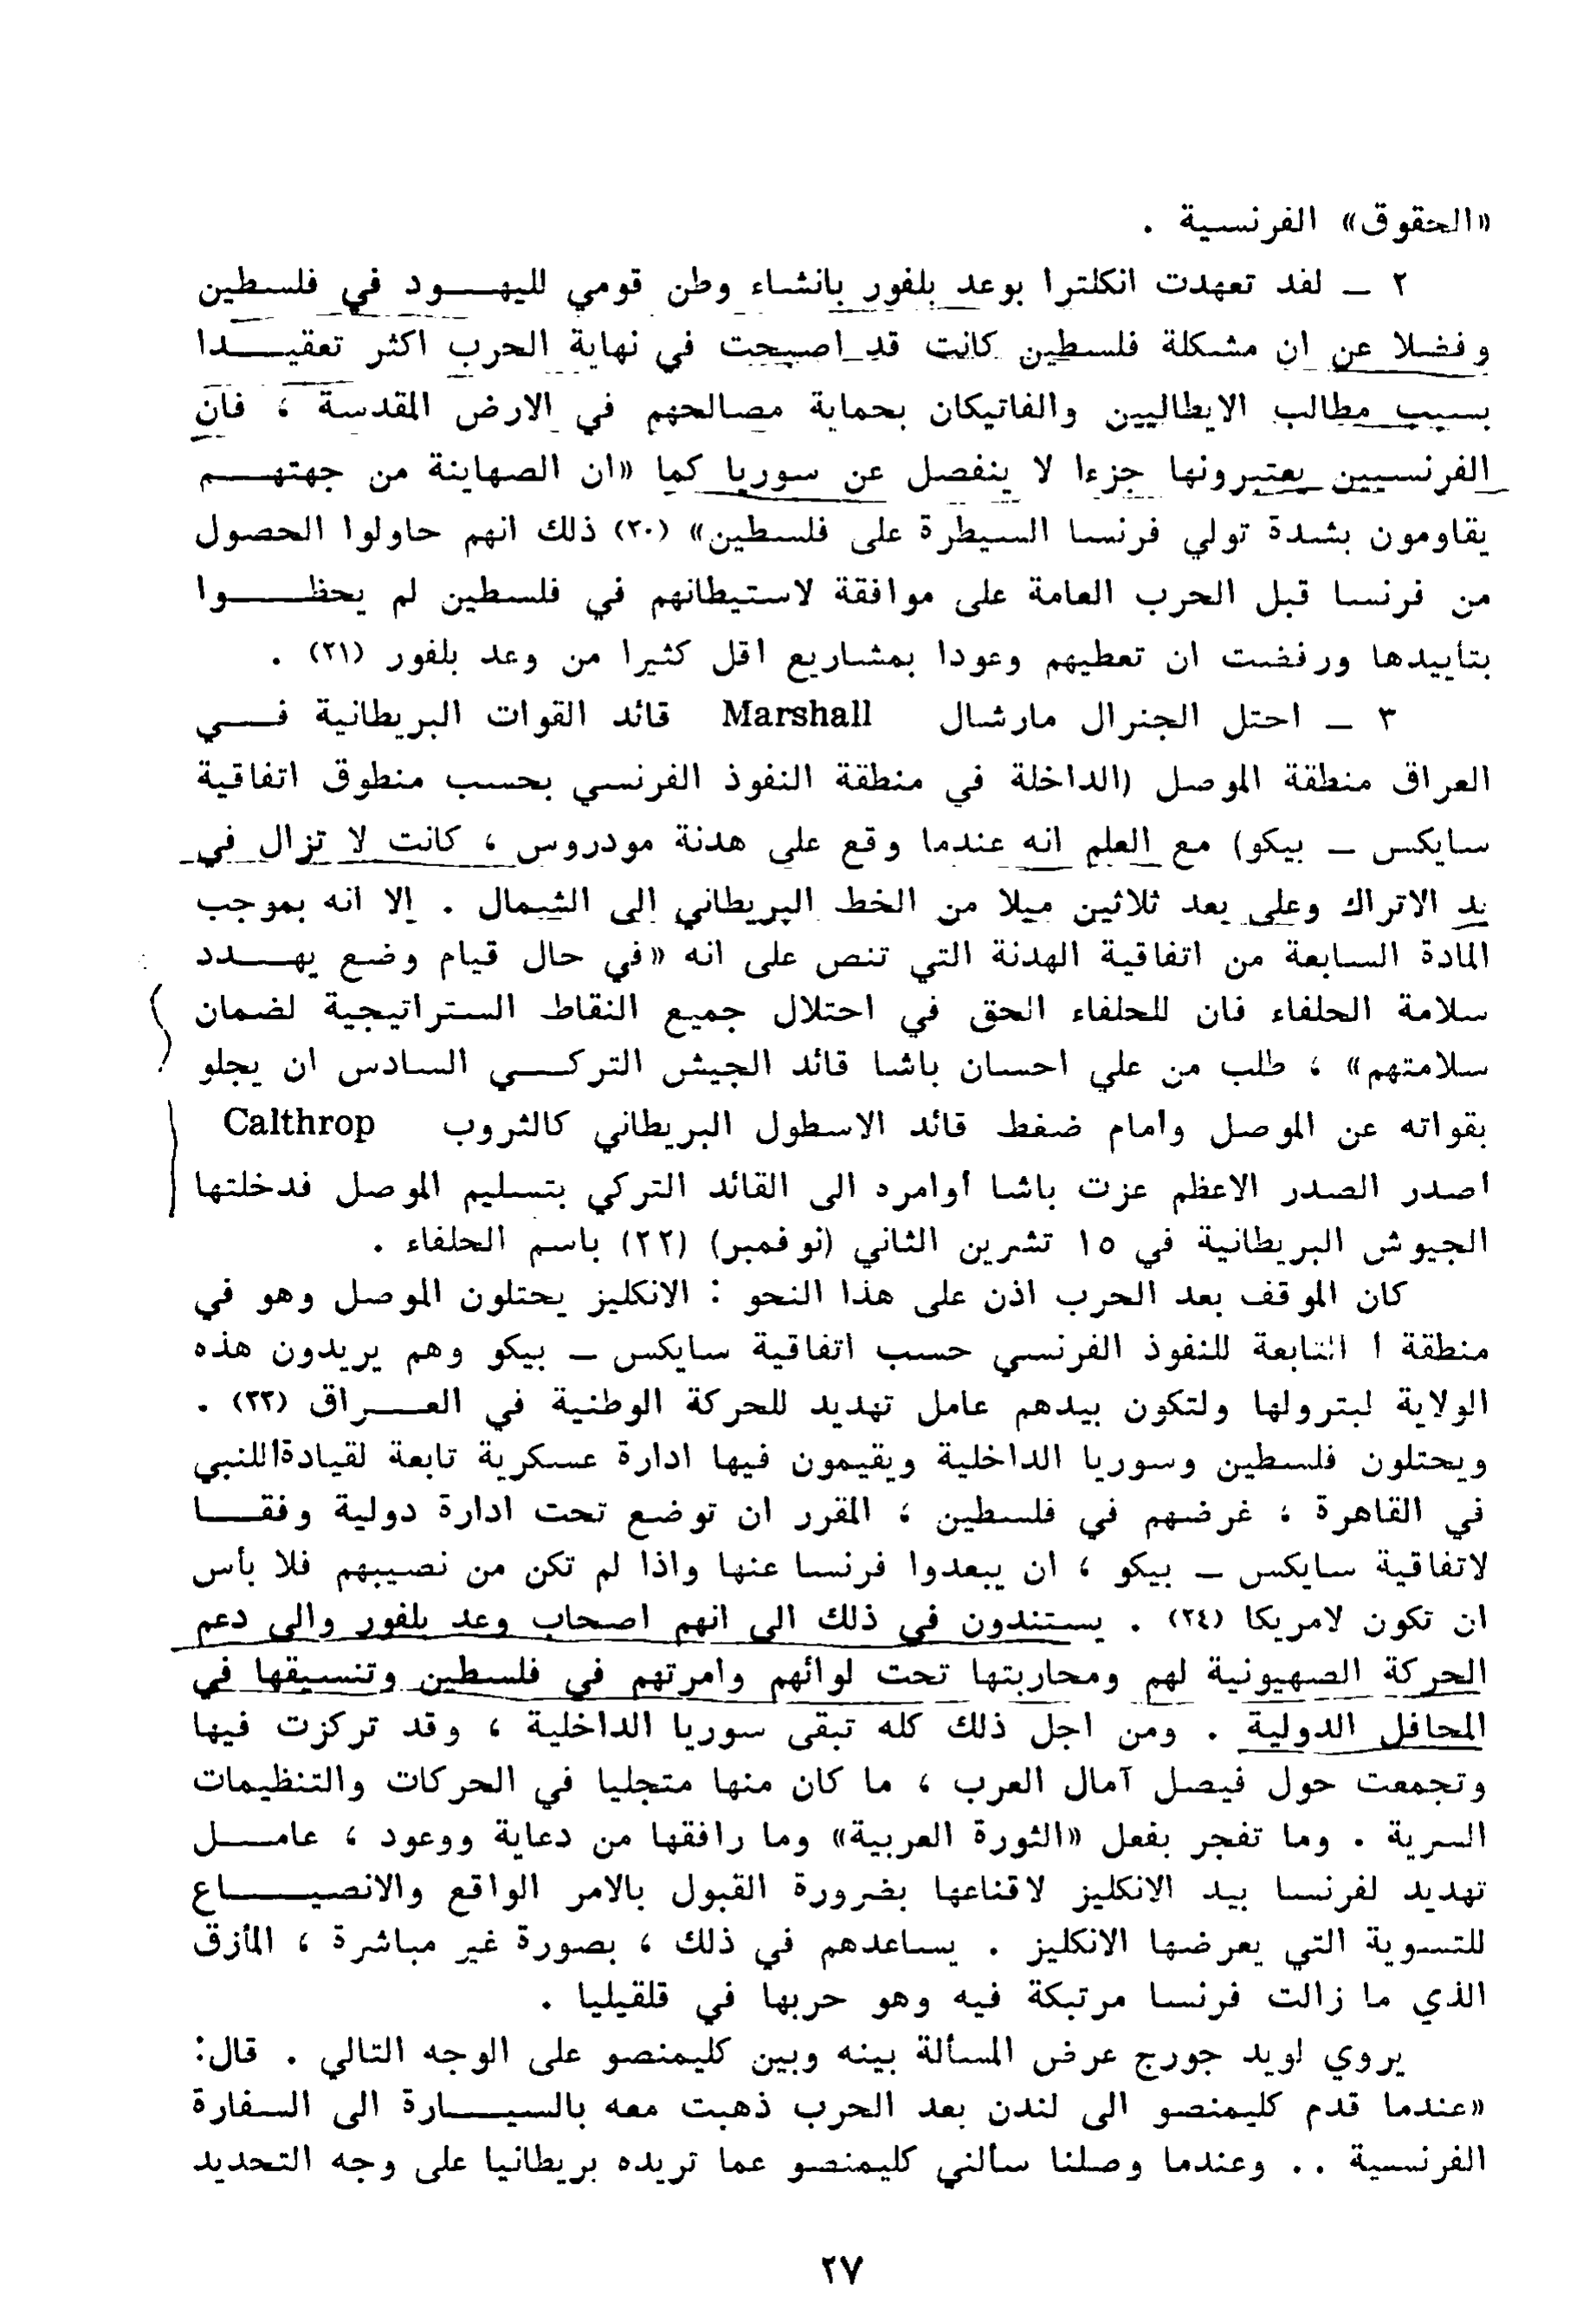 «الحقوق» الفرنسية .
٢ ــ لفد تعهدت انكلترا بوعد بلفور بانشاء وطن قومي لليهود في فلسطين
وفضلا عن ان مشكلة فلسطين كانت قد اصبحت في نهاية الحرب اكثر تعقيدا
بسبب مطالب الايطاليين والفاتيكان بحماية مصالحهم في الارض المقدسة ، فان
الفرنسيين يعتبرونها جزءا لا ينفصل عن سوريا كما «ان الصهاينة من جهتهم
يقاومون بشدة تولي فرنسا السيطرة على فلسطين» (٢٠) ذلك انهم حاولوا الحصول
من فرنسا قبل الحرب العامة على موافقة لاستيطانهم في فلسطين لم يحظوا
بتاييدها ورفضت ان تعطيهم وعودا بمشاريع اقل كثيرا من وعد بلفور (٢١) .
٣ ــ احتل الجنرال مارشال Marshall قائد القوات البريطانية في
العراق منطقة الموصل (الداخلة في منطقة النفوذ الفرنسي بحسب منطوق اتفاقية
سايكس ــ بيكو) مع العلم انه عندما وقع على هدنة مودروس ، كانت لا تزال في
يد الاتراك وعلى بعد ثلاثين ميلا من الخط البريطاني الى الشمال . الا انه بموجب
المادة السابعة من اتفاقية الهدنة التي تنص على انه «في حال قيام وضع يهدد
سلامة الحلفاء فان للحلفاء الحق في احتلال جميع النقاط الستراتيجية لضمان
سلامتهم» ، طلب من علي احسان باشا قائد الجيش التركي السادس ان يجلو
بقواته عن الموصل وأمام ضغط قائد الاسطول البريطاني كالثروب Calthrop
اصدر الصدر الاعظم عزت باشا أوامره الى القائد التركي بتسليم الموصل فدخلتها
الجيوش البريطانية في ١٥ تشرين الثاني (نوفمبر) (٢٢) باسم الحلفاء .
كان الموقف بعد الحرب اذن على هذا النحو : الانكليز يحتلون الموصل وهو في
منطقة أ التابعة للنفوذ الفرنسي حسب اتفاقية سايكس ــ بيكو وهم يريدون هذه
الولاية لبترولها ولتكون بيدهم عامل تهديد للحركة الوطنية في العراق (٢٣) .
ويحتلون فلسطين وسوريا الداخلية ويقيمون فيها ادارة عسكرية تابعة لقيادةاللنبي
في القاهرة ، غرضهم في فلسطين ، المقرر ان توضع تحت ادارة دولية وفقا
لاتفاقية سايكس ــ بيكو ، ان يبعدوا فرنسا عنها واذا لم تكن من نصيبهم فلا بأس
ان تكون لامريكا (٢٤) . يستندون في ذلك الى انهم اصحاب وعد بلفور والى دعم
الحركة الصهيونية لهم ومحاربتها تحت لوائهم وامرتهم في فلسطين وتنسيقها في
المحافل الدولية . ومن اجل ذلك كله تبقى سوريا الداخلية ، وقد تركزت فيها
وتجمعت حول فيصل آمال العرب ، ما كان منها متجليا في الحركات والتنظيمات
السرية . وما تفجر بفعل «الثورة العربية» وما رافقها من دعاية ووعود ، عامل
تهديد لفرنسا بيد الانكليز لاقناعها بضرورة القبول بالامر الواقع والانصياع
للتسوية التي يعرضها الانكليز . يساعدهم في ذلك ، بصورة غير مباشرة ، المأزق
الذي ما زالت فرنسا مرتبكة فيه وهو حربها في قلقيليا .
يروي لويد جورج عرض المسألة بينه وبين كليمنصو على الوجه التالي . قال:
«عندما قدم كليمنصو الى لندن بعد الحرب ذهبت معه بالسيارة الى السفارة
الفرنسية .. وعندما وصلنا سألني كليمنصو عما تريده بريطانيا على وجه التحديد
٢٧